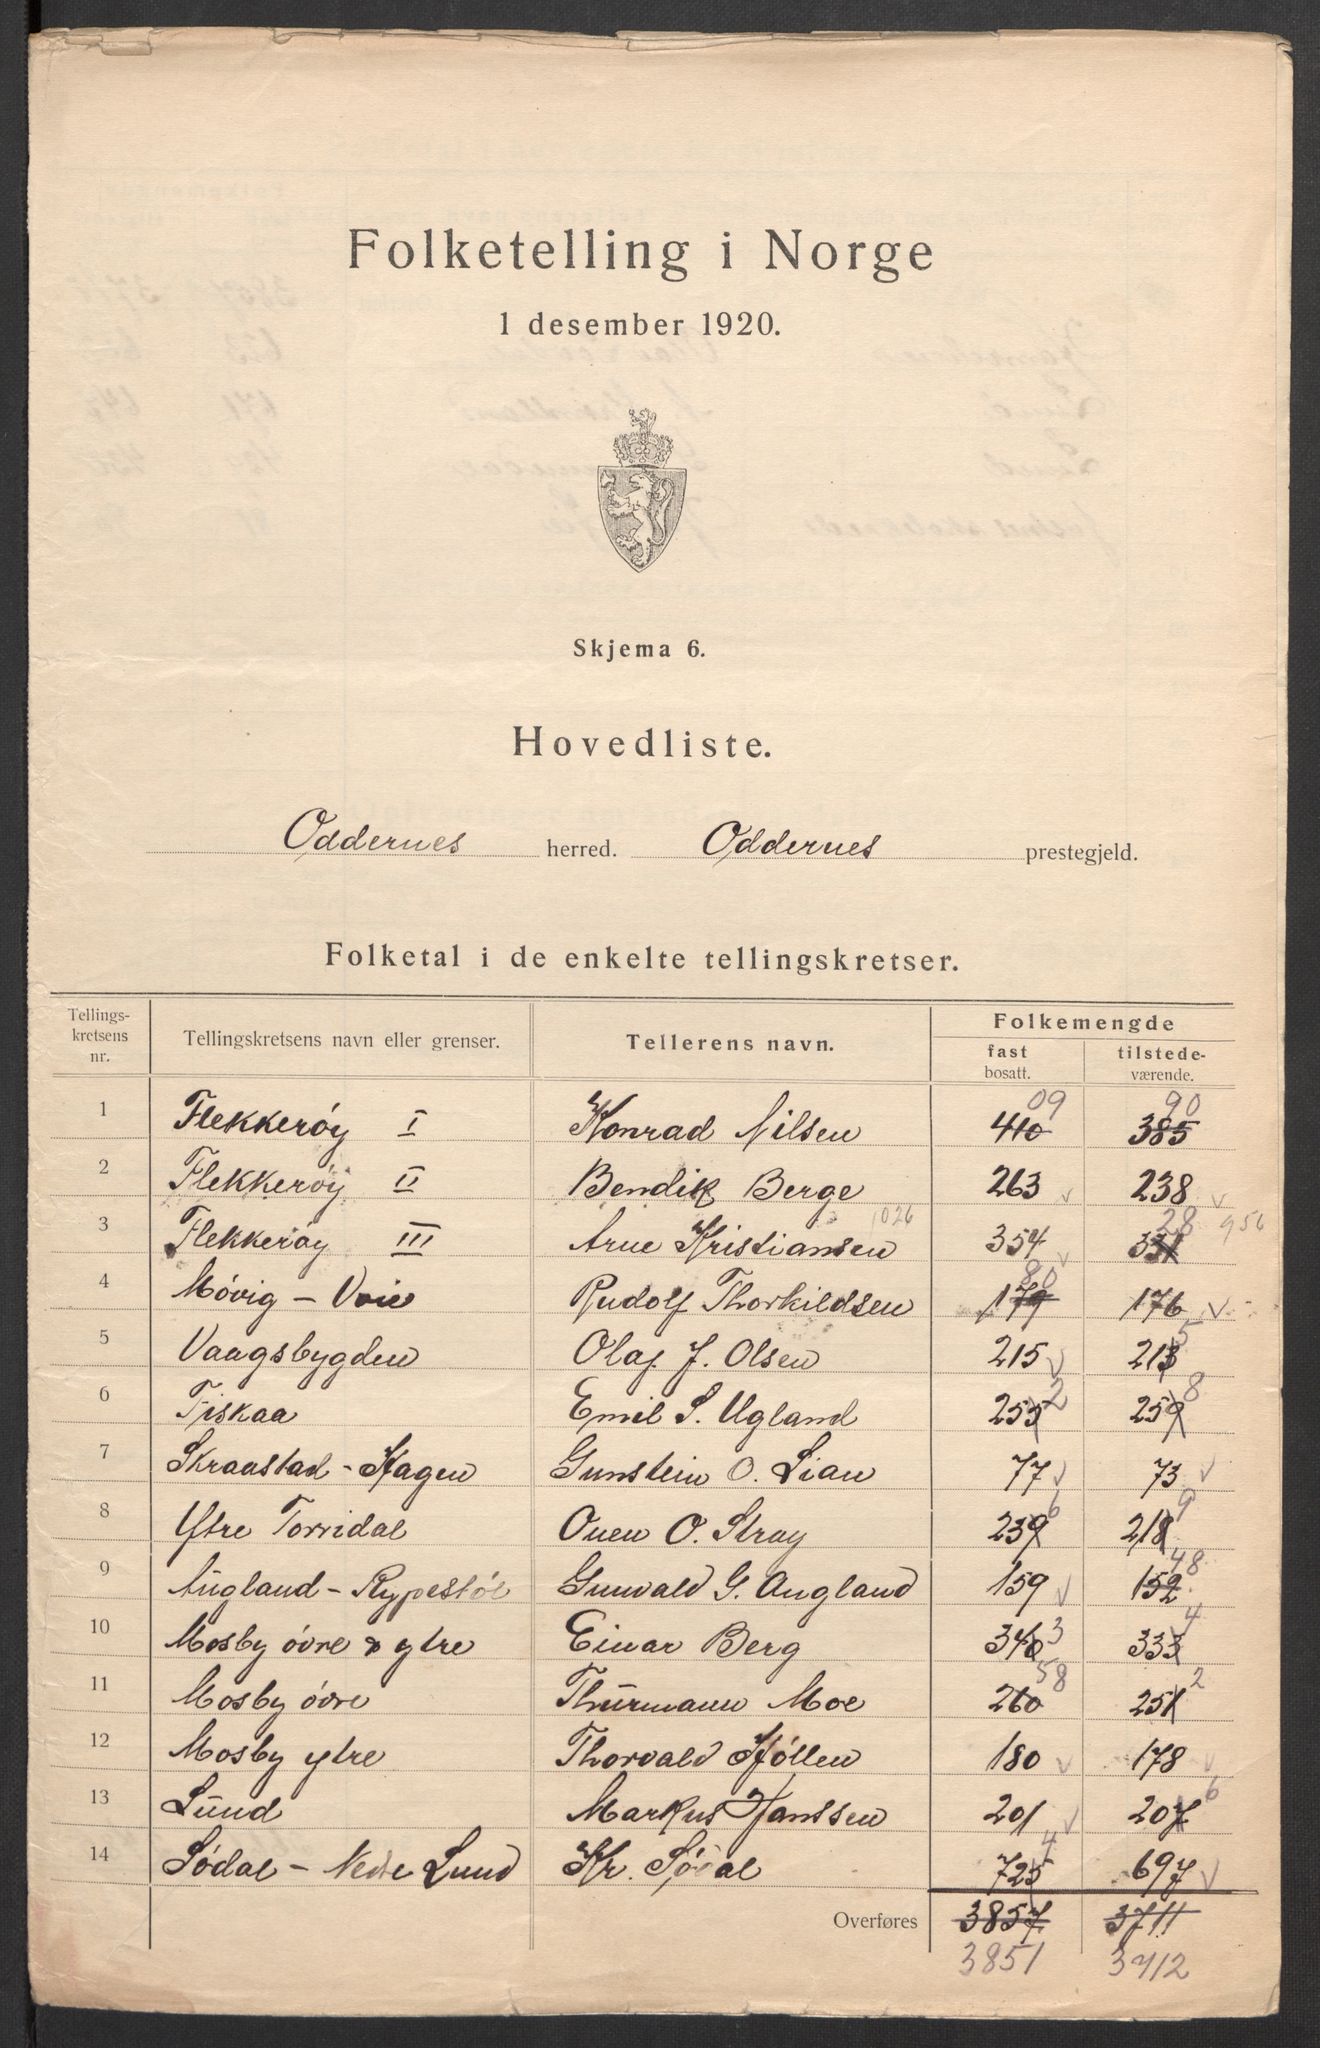 Folketelling i Norge
1 desember 1920.
Skjema 6.
Hovedliste.
Oddernes herred. Oddernes prestegjeld.
Folketal i de enkelte tellingskretser.
Tellings-kretsens nr. Tellingskretsens navn eller grenser. Tellerens navn. Folkemengde
fast bosatt. tilstede-værende.
09 90
1 Flekkerøy I Konrad Nilsen 410 385
2 Flekkerøy II Bendik Berge 263 238
1026 28 956
3 Flekkerøy III Arne Kristiansen 354 331
80
4 Møvig - Voie Rudolf Thorkildsen 179 176
5 Vaagsbygden Olaf J. Olsen 215 213 5
6 Fiskaa Emil S. Ugland 255 2 259 8
7 Skraastad - Hagen Gunstein O. Lian 77 73
6 9
8 Ytre Torridal Ouen O. Stray 239 218
48
9 Augland - Rypestøl Gunvald G. Augland 159 152
10 Mosby øvre & ytre Einar Berg 340 3 333 4
58
11 Mosby øvre Thurmann Moe 260 251 2
12 Mosby ytre Thorvald Høllen 180 178
13 Lund Markus Hanssen 201 207 6
4
14 Sødal - Nedre Lund Kr. Sødal 725 697
Overføres 3857 3711
3851 3712